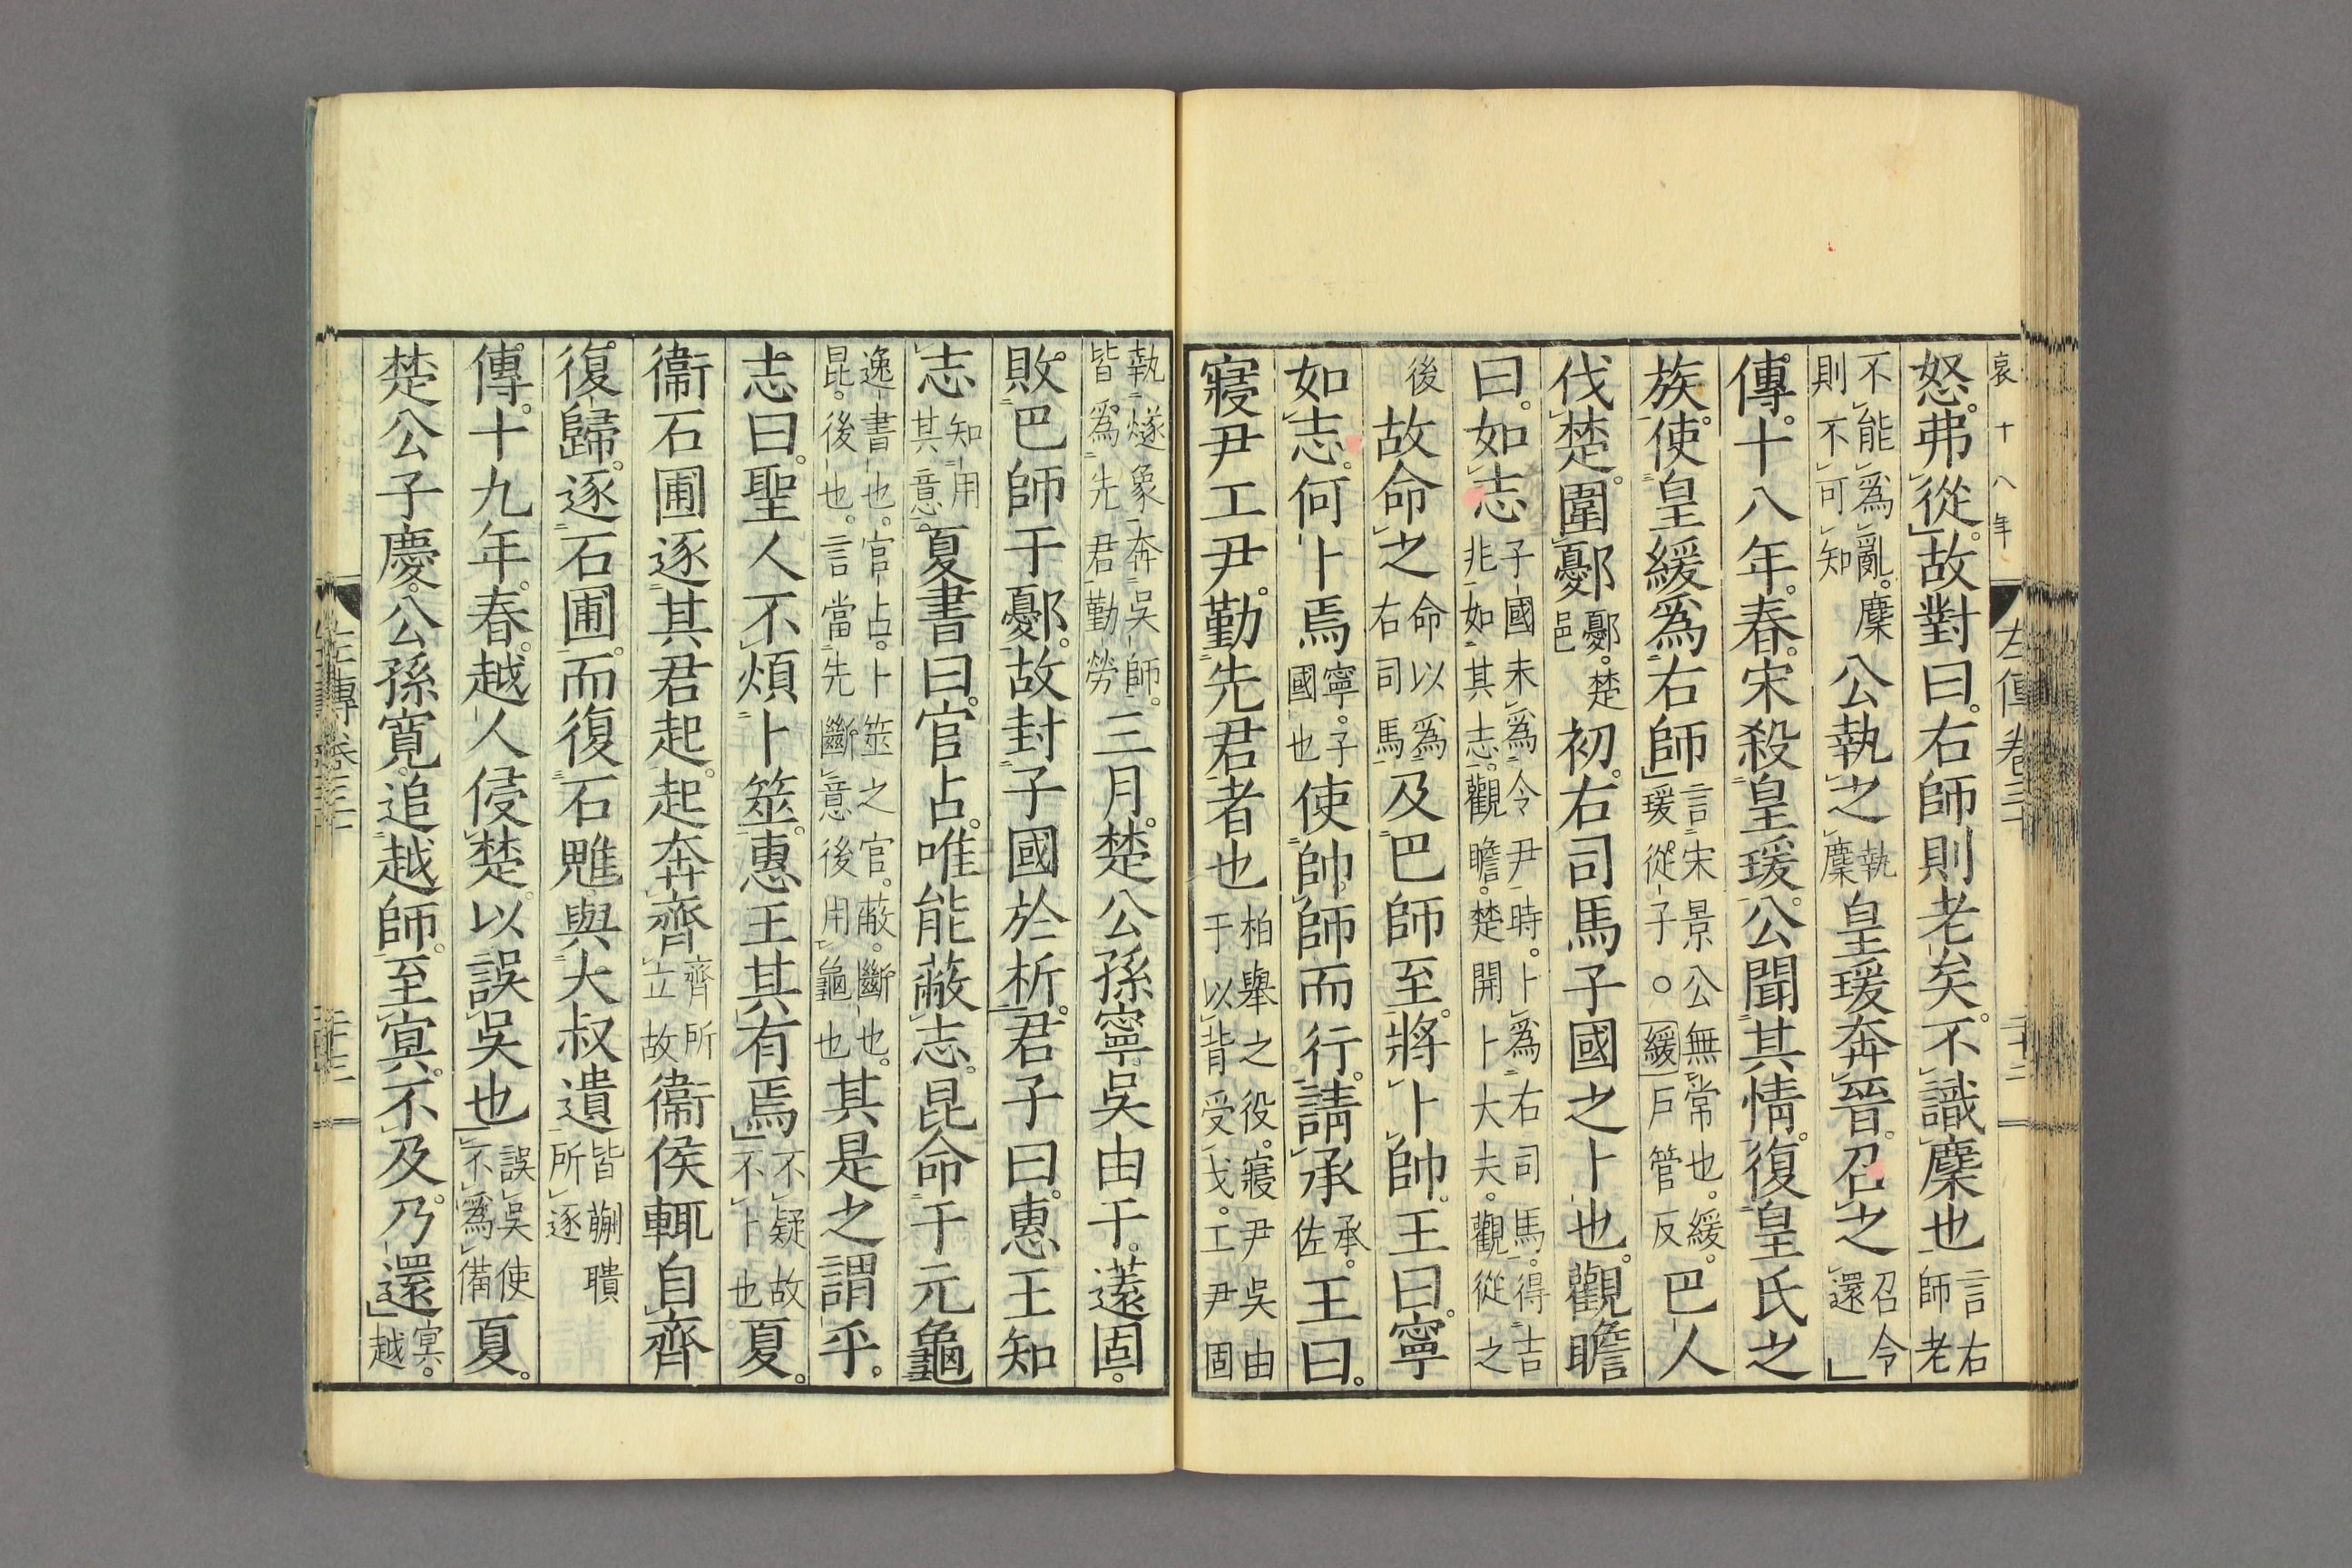 哀十八年 左傳卷三十 二十二
怒。弗從。故對曰。右師則老矣。不識麇也言右師老
不能爲亂。麇則不可知公執之執麇皇瑗奔晉。召之召令還
傳。十八年。春。宋殺皇瑗。公聞其情。復皇氏之
族。使皇緩爲右師言宋景公無常也。緩。瑗從子。○緩戶管反巴人
伐楚。圍鄾鄾。楚邑初。右司馬子國之卜也。觀瞻
曰。如志子國未爲令尹時。卜爲右司馬。得吉兆如其志。觀瞻。楚開卜大夫。觀從之
後故命之命以爲右司馬及巴師至。將卜帥。王曰。寧
如志。何卜焉寧。子國也使帥師而行。請承承。佐王曰。
寢尹工尹。勤先君者也柏舉之役。寢尹吳由于以背受戈。工尹固
執燧象奔吳師。皆爲先君勤勞三月。楚公孫寧。吳由于。薳固。
敗巴師于鄾。故封子國於析。君子曰。惠王知
志知用其意。夏書曰。官占。唯能蔽志。昆命于元龜
逸書也。官占。卜筮之官。蔽。斷也。昆。後也。言當先斷意後用龜也其是之謂乎。
志曰。聖人不煩卜筮。惠王其有焉不疑故不卜也夏。
衞石圃逐其君起。起奔齊齊所立故衞侯輒自齊
復歸。逐石圃。而復石魋與大叔遺皆蒯聵所逐
傳。十九年。春。越人侵楚。以誤吳也誤吳使不爲備夏。
楚公子慶。公孫寬。追越師。至冥。不及。乃還冥。越
左傳卷三十